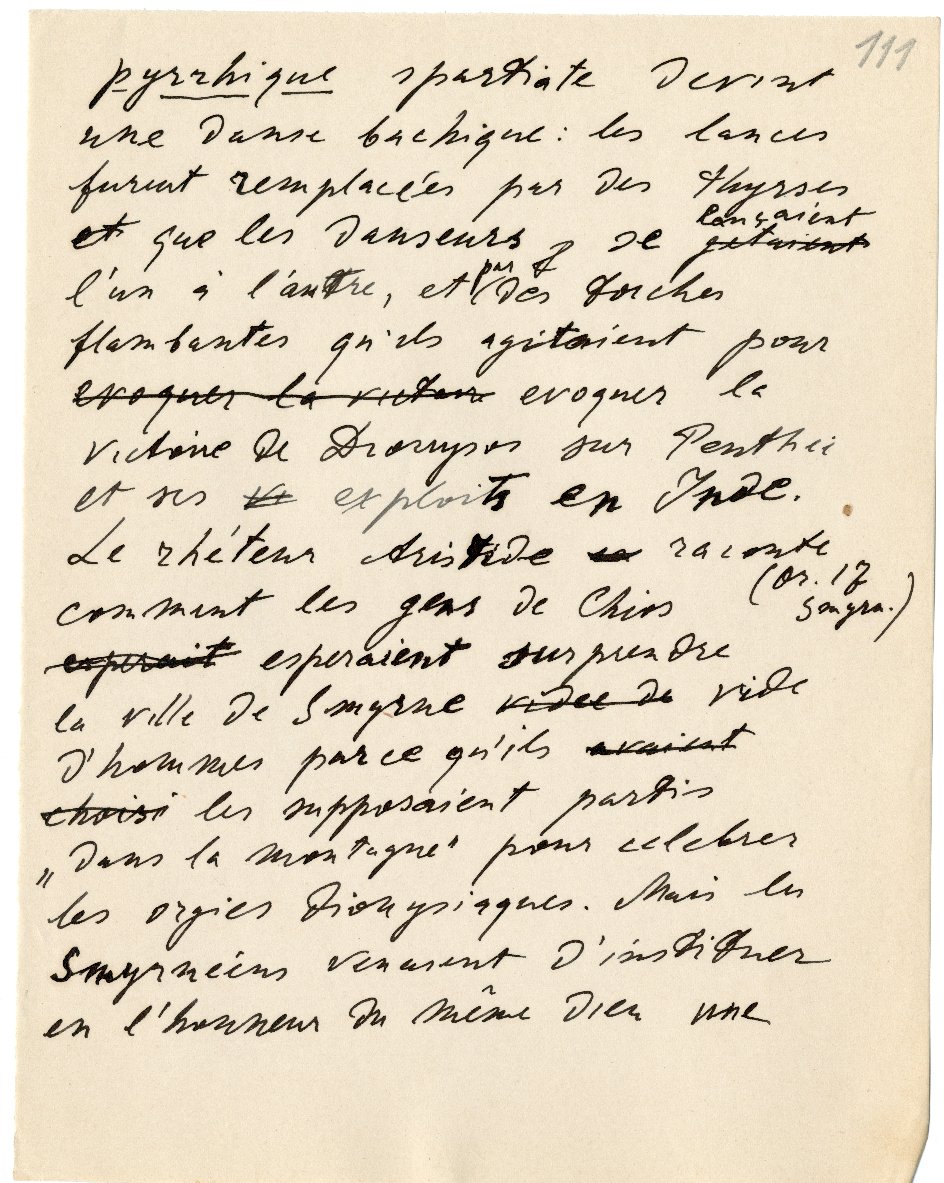 111
pyrrhique spartiate devint
une danse bachique: les lances
furent remplacées par des thyrses
lançaient
et que les danseurs se getaient
par
l'un à l'autre, et des torches
flambantes qu'ils agitaient pour
evoquer la victoire evoquer la
victoire de Dionysos sur Penthée
et ses exploits en Inde.
Le rhéteur Aristide raconte
(Or. 17
comment les gens de Chios
Smyrn.)
esperait esperaient surprendre
la ville de Smyrne videe de vide
d'hommes parce qu'ils avaient
choisi les supposaient partis
„dans la montagne" pour celebrer
les orgies dionysiaques. Mais les
Smyrnéens venaient d'instituer
en l'honneur du même dieu une